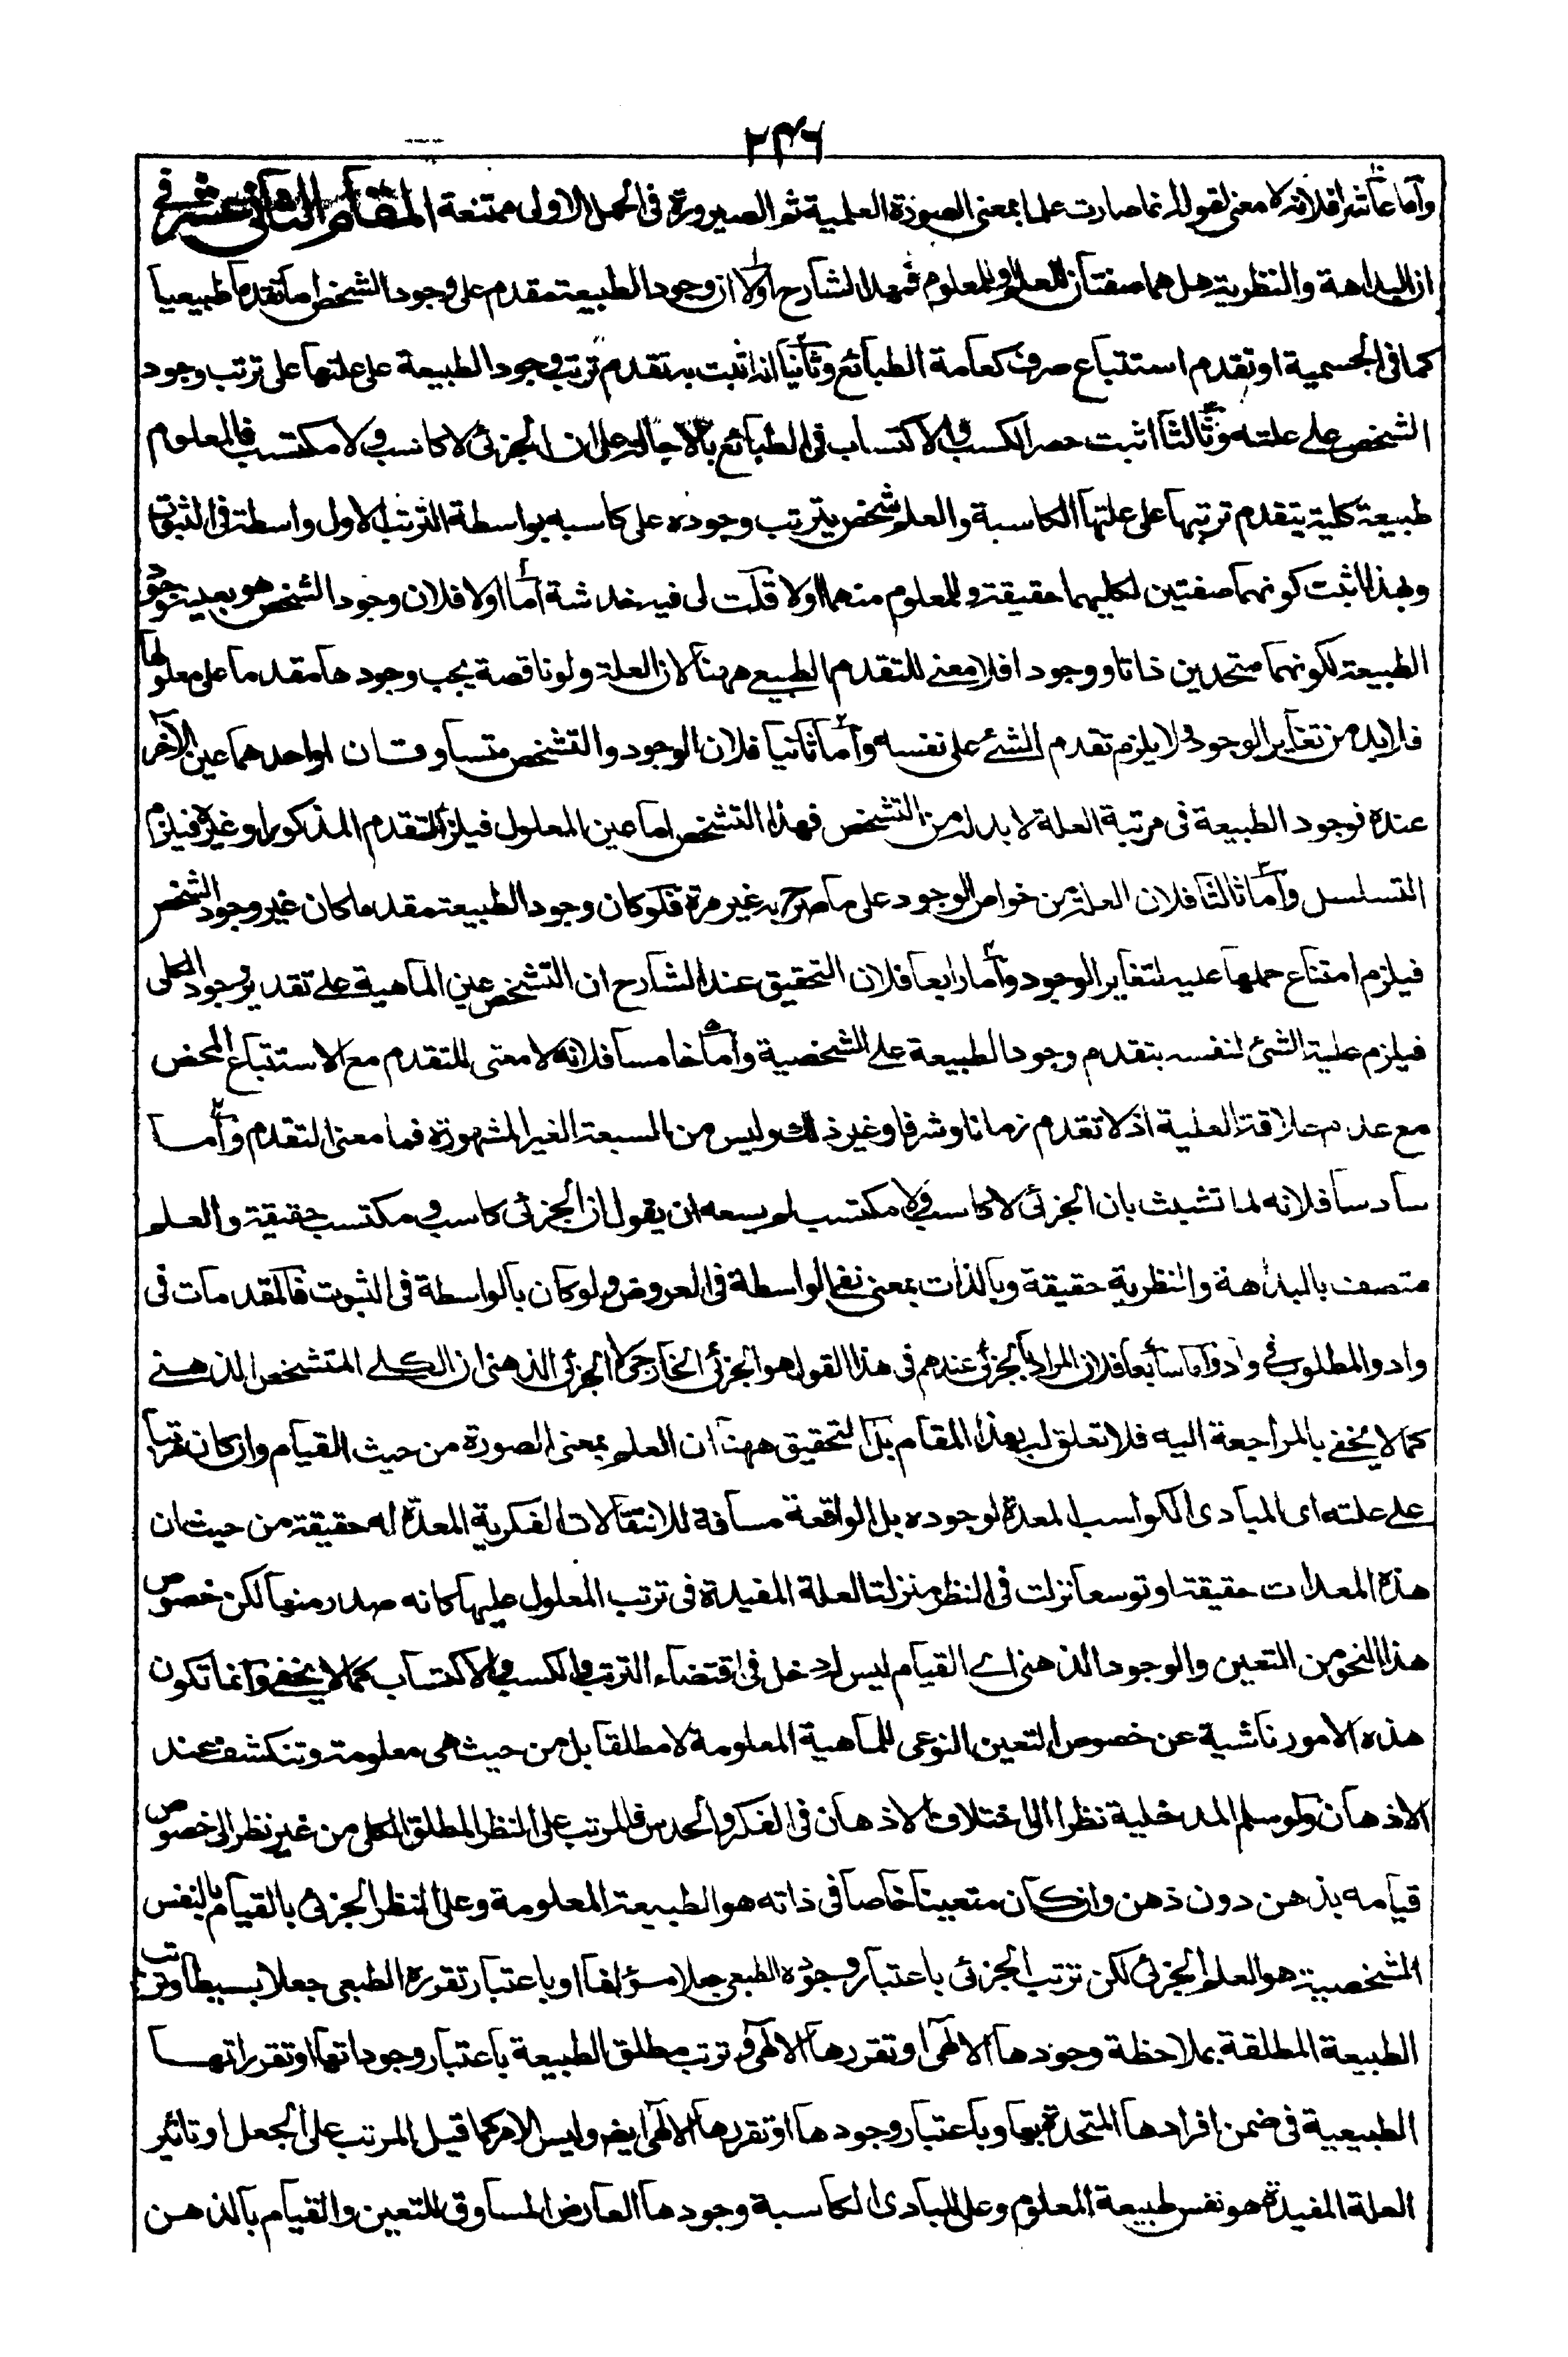 ٢٤٦
وأما عاشرا فلانه لا معنى لقوله انما صارت علما بمعنى الصورة العلمية ثم الصيرورة فى الحمل الاولى ممتنعة المقام الثانى عشر فى
ان البداهة والنظرية هل هما صفتان للعلم او للمعلوم فمهد الشارح اولا ان وجود الطبيعة مقدم على وجود الشخص اما تقدما طبيعيا
كما فى الجسمية او تقدم استتباع صرف كعامة الطبائع وثانيا انه اثبت به تقدم ترتب وجود الطبيعة على علتها على ترتب وجود
الشخص على علته وثالثا اثبت حصر الكسب والاكتساب فى الطبائع بالاحالة على ان الجزئى لا كاسب ولا مكتسب فالمعلوم
طبيعة كلية يتقدم ترتبها على علتها الكاسبة والعلم شخص يترتب وجوده على كاسبه بواسطة الترتب الاول واسطة فى الثبوت
وبهذا اثبت كونهما صفتين لكليهما حقيقة وللمعلوم منهما اولا قلت لى فيه خدشة أما اولا فلان وجود الشخص هو بعينه وجود
الطبيعة لكونهما متحدين ذاتا ووجودا فلا معنى للتقدم الطبيعى ههنا لان العلة ولو ناقصة يجب وجودها مقدما على معلولها
فلا بد من تغاير الوجود ولا يلزم تقدم الشئ على نفسه وأما ثانيا فلان الوجود والتشخص متساوقان او احدهما عين الآخر
عنده فوجود الطبيعة فى مرتبة العلة لا بد له من التشخص فهذا التشخص اما عين المعلول فيلزم التقدم المذكور او غيره فيلزم
التسلسل وأما ثالثا فلان العلة من خواص الوجود على ما صرح به غير مرة فلو كان وجود الطبيعة مقدما كان غير وجود الشخص
فيلزم امتناع حملها عليه لتغاير الوجود وأما رابعا فلان التحقيق عند الشارح ان التشخص عين الماهية على تقدير وجود الكلى
فيلزم علية الشئ لنفسه بتقدم وجود الطبيعة على الشخصية وأما خامسا فلانه لا معنى للتقدم مع الاستتباع المحض
مع عدم علاقة العلية اذ لا تقدم زمانا وشرفا وغير ذلك وليس من السبعة الغير المشهورة فما معنى التقدم وأما
سادسا فلانه لما تشبث بان الجزئى لا كاسب ولا مكتسب لم يسعه ان يقول ان الجزئى كاسب ومكتسب حقيقة والعلم
متصف بالبداهة والنظرية حقيقة وبالذات بمعنى نفى الواسطة فى العروض ولو كان بالواسطة فى الثبوت فالمقدمات فى
واد والمطلوب فى واد وأما سابعا فلان المراد بالجزئى عندهم فى هذا القول هو الجزئى الخارجى لا الجزئى الذهنى ان الكلى المتشخص الذهنى
كما لا يخفى بالمراجعة اليه فلا تعلق له بهذا المقام بل التحقيق ههنا ان العلم بمعنى الصورة من حيث القيام وان كان مرتبا
على علته اى المبادى الكواسب المعدة لوجوده بل الواقعة مسافة للانتقالات الفكرية المعدة له حقيقة من حيث ان
هذه المعدات حقيقة او توسعا نزلت فى النظر منزلة العلة المفيدة فى ترتب المعلول عليها كانه صدر منها لكن خصوص
هذا النحو من التعين والوجود الذهنى اى القيام ليس له دخل فى اقتضاء الترتب والكسب والاكتساب كما لا يخفى وانما تكون
هذه الامور ناشية عن خصوص التعين النوعى للماهية المعلومة لا مطلقا بل من حيث هى معلومة وتنكشف عند
الاذهان ولو سلم المدخلية نظرا الى اختلاف الاذهان فى الفكر والحدس فالمرتب على النظر المطلق الكلى من غير نظر الى خصوص
قيامه بذهن دون ذهن وان كان متعينا خاصا فى ذاته هو الطبيعة المعلومة وعلى النظر الجزئى بالقيام بالنفس
الشخصية هو العلم الجزئى لكن ترتب الجزئى باعتبار وجوده الطبعى جعلا مؤلفا او باعتبار تقرره الطبعى جعلا بسيطا وترتب
الطبيعة المطلقة بملاحظة وجودها الالهى او تقررها الالهى وترتب مطلق الطبيعة باعتبار وجوداتها او تقرراتها
الطبيعية فى ضمن افرادها المتحدة بها وباعتبار وجودها او تقررها الالهى ايضا وليس الامر كما قيل المرتب على الجعل او تاثير
العلة المفيدة هو نفس طبيعة المعلوم وعلى المبادى الكاسبة وجودها العارض المساوق للتعين والقيام بالذهن